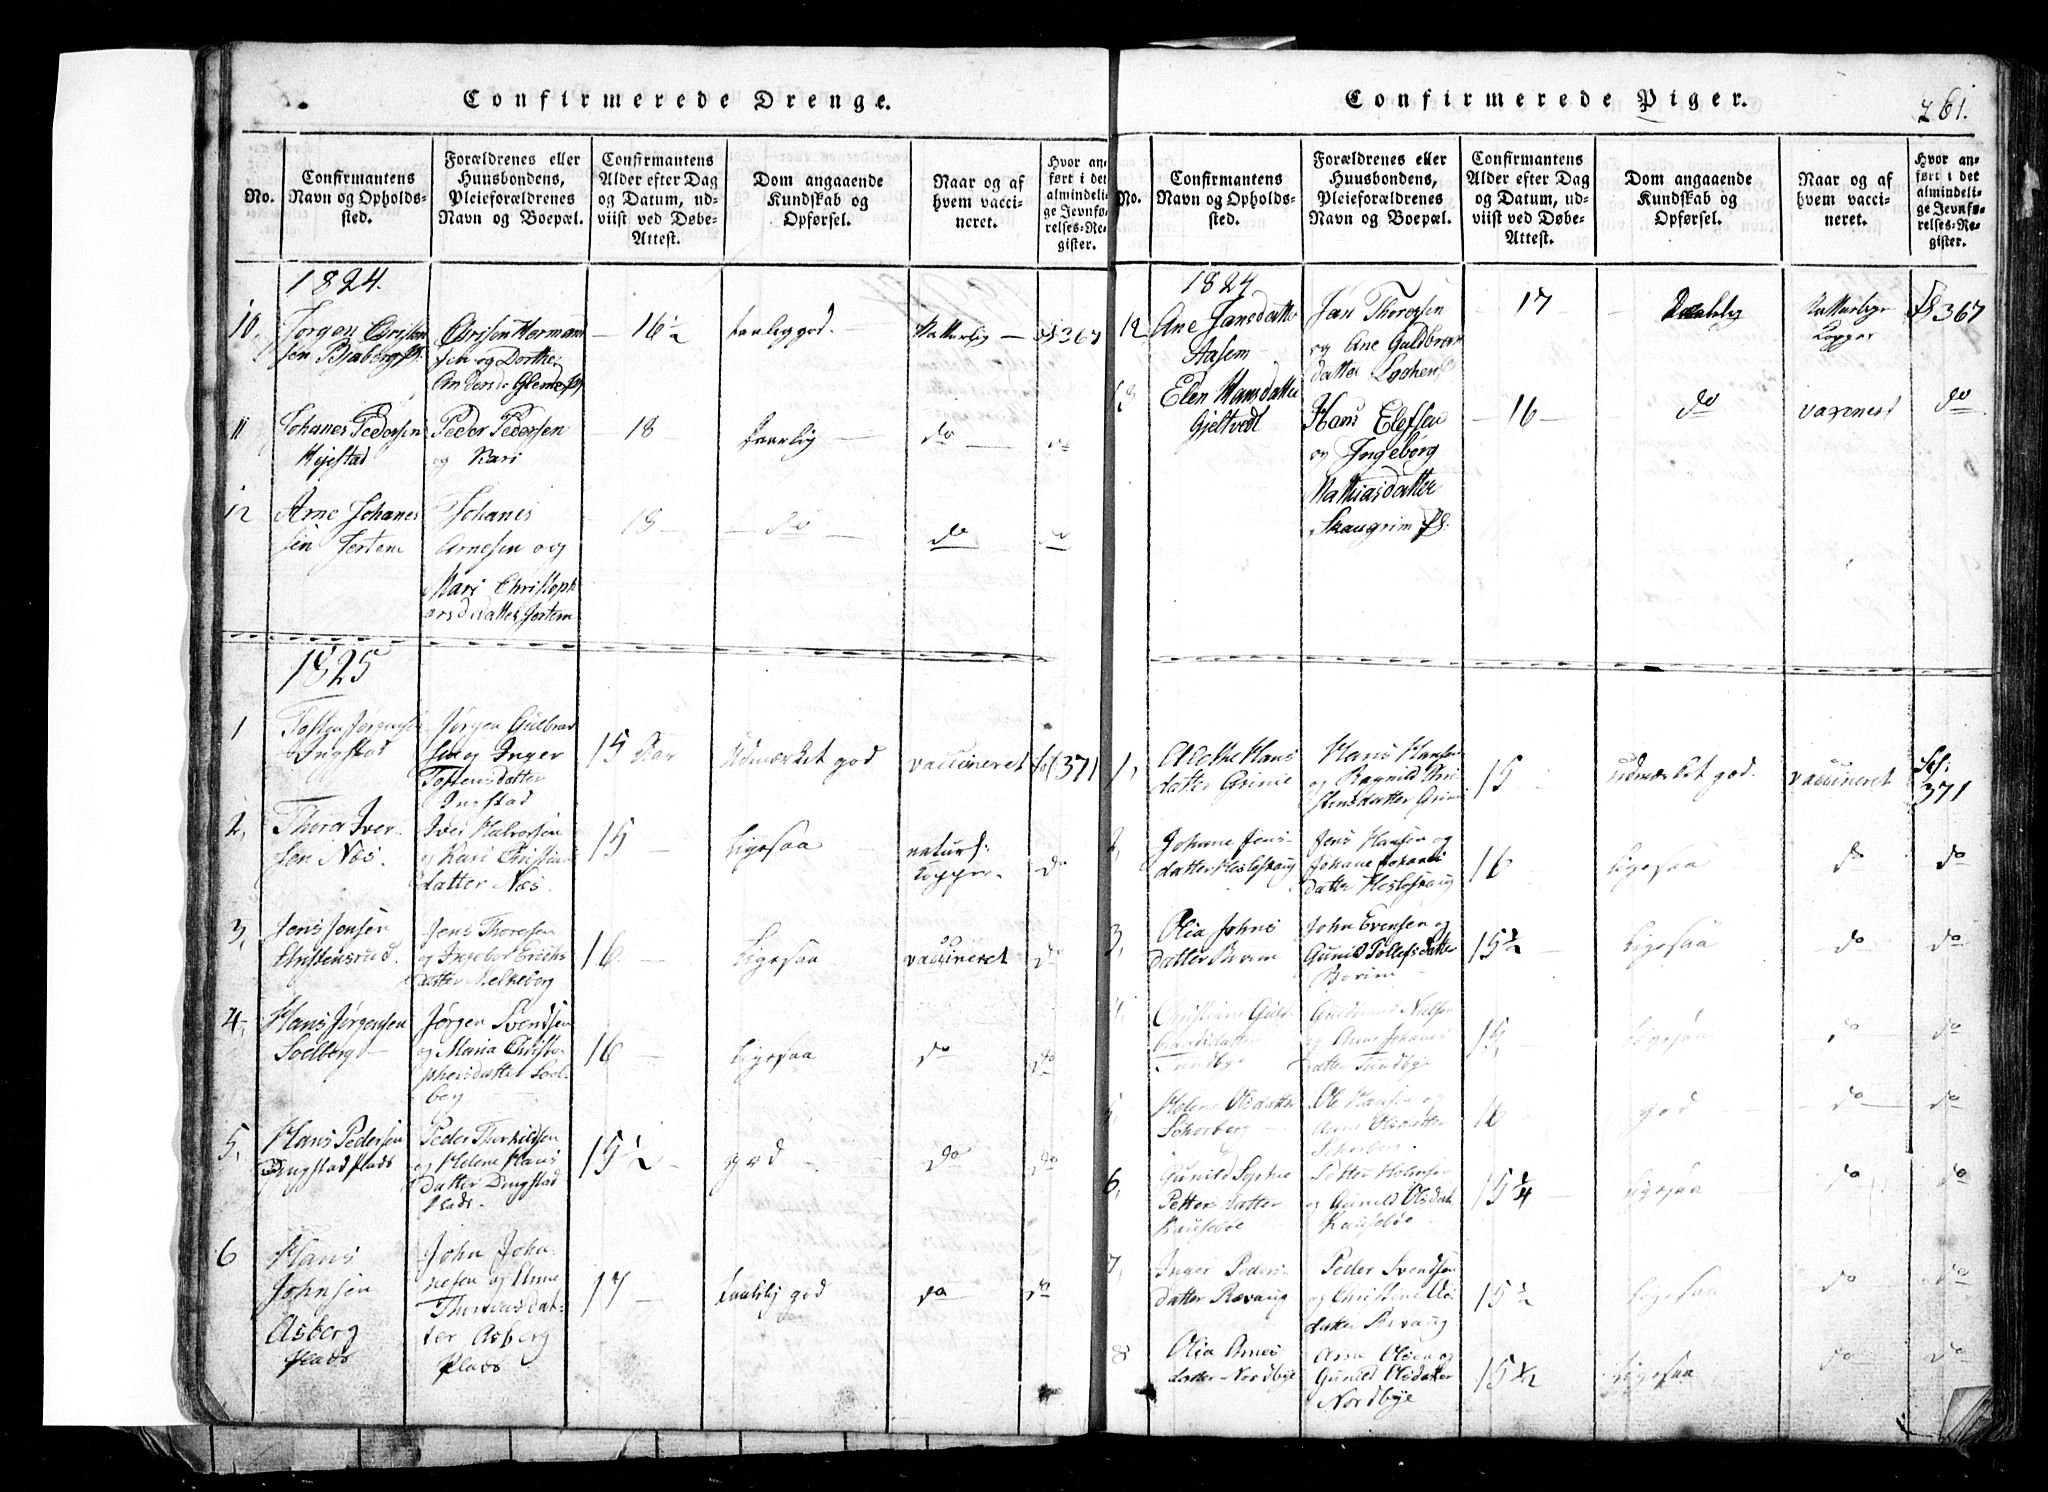 Confirmerede Drenge.
No.
Confirmantens
Navn og Opholds-
sted.
Forældrenes eller
Huusbondens,
Pleieforældrenes
Navn og Boepæl.
Confirmantens
Alder efter Dag
og Datum, ud-
viist ved Døbe-
Attest.
Dom angaaende
Kundskab og
Opførsel.
Naar og af
hvem vacci-
neret.
Hvor an-
ført i det
almindeli-
ge Jevnfø-
relses-Re-
gister.
1824.
10.
Jørgen Christen
sen Bjaberg
Christen Herman
sen og Dorthe
Anders d. Glende
16½
taalig god.
Natturlig
367
11
Johanes Pedersen
Hejestad
Peder Pedersen
og Kari
18
taalig
do
do
12
Arne Johanes
sen Jertem
Johanes
Arnesen og
Mari Christoph
orsdatter Jertem
18
do
do
do
1825
1
Tosten Jørgensen
Ingstad
Jørgen Gulbrand
sen og Inger
Tostensdatter
Ingstad
15 Aar
Udmærket god
vaccineret
371
2,
Thor Iver
sen Næs.
Iver Halvorsen
og Kari Christians
datter Næs.
15
Ligesaa
naturl:
Kopper
do
3,
Jens Jensen
Christensrud.
Jens Thoresen
og Ingebor Erichs
datter Melkeberg
16
Ligesaa
vaccineret
do
4,
Hans Jørgensen
Soelberg
Jørgen Svendsen
og Maria Christo-
phersdatter Soel-
berg
16
Ligesaa
do
do
5,
Hans Pedersen
Dingstad Plads
Peder Thorkildsen
og Helene Hans
datter Dingstad
Plads.
15½
god
do
do
6
Hans
Johnsen
Asberg
Plads
John Joha-
nesen og Anne
Thoresdat-
ter Asberg
Plads
17
taalelig god
do
do
Confirmerede Piger.
261.
No.
Confirmantens
Navn og Opholds-
sted.
Forældrenes eller
Huusbondens,
Pleieforældrenes
Navn og Boepæl.
Confirmantens
Alder efter Dag
og Datum, ud-
viist ved Døbe-
Attest.
Dom angaaende
Kundskab og
Opførsel.
Naar og af
hvem vacci-
neret.
Hvor an-
ført i det
almindeli-
ge Jevnfø-
relses-Re-
gister.
1824
12
Ane Jansdatter
Aasem
Jan Thoresen
og Ane Guldbran
datter Lochen
17
Natturlige
Kopper
367
13
Elen Hansdatter
Gjeltvedt
Hans Elefsen
og Ingeborg
Mathiasdatter
Skaugrim
16
do
vaxenest
do
1,
Alethe Hans
datter Grime
Hans Hansen
og Ragnild Chri
stensdatter Grime
15
udmærket god.
vaccineret
371
2,
Johane Jens-
datter Hesleskaug
Jens Hansen og
Johane Johans
datter Hesleskaug
16
Ligesaa
do
do
3,
Olia Johns
datter Borem
John Evensen og
Gunild Tollefsdatter
Borem
15½
Ligesaa
do
do
4,
Christiane Guld
brandsdatter
Tundbye
Guldbrand Nelsen
og Anne Johanes
datter Tundbye
15
Ligesaa
do
do
5
Helene Olsdatter
Schorberg
Ole Hansen og
Anne Olsdatter
Schorberg.
16
god
do
do
6,
Gunild Sophie
Petters datter
Kauseböe
Petter Holmsen
og Gunild Olsdat
Kauseböe
15¼
Ligesaa
do
do
7,
Inger Peders-
datter Revaug
Peder Svendsen
og Christine Ols
datter Revaug
15½
Ligesaa
do
do
8
Olia Arnes
datter Nordbye
Arne Olsen og
Gunild Olsdatter
Nordbye
15½
Ligesaa
do
do